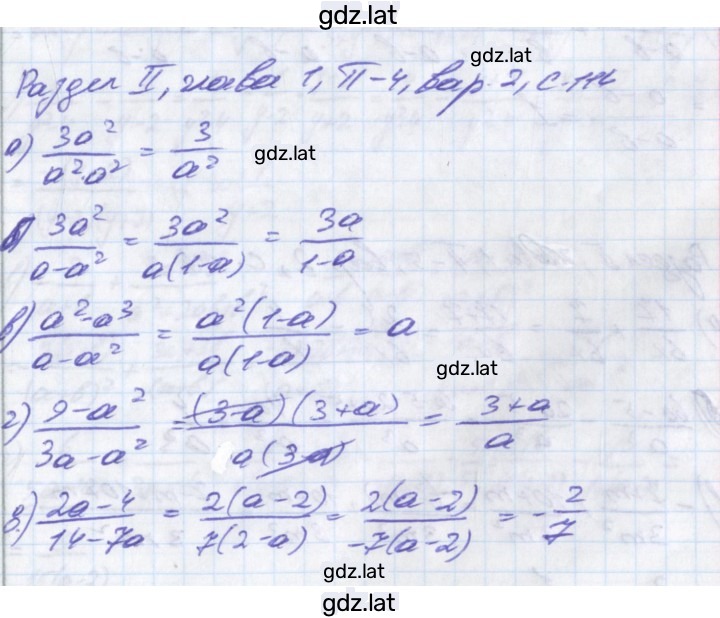 gdz.lat
gdz.lat
Раздел II, глава 1, П-4, вар. 2, с.
а) 3a²/a²·a² = 3/a²
gdz.lat
б) 3a²/a-a² = 3a²/a(1-a) = 3a/1-a
в) a²-a³/a-a² = a²(1-a)/a(1-a) = a
gdz.lat
г) 9-a²/3a-a² = (3-a)(3+a)/a(3-a) = 3+a/a
2a-4/14-7a = 2(a-2)/7(2-a) = 2(a-2)/-7(a-2) = -2/7
gdz.lat
gdz.lat